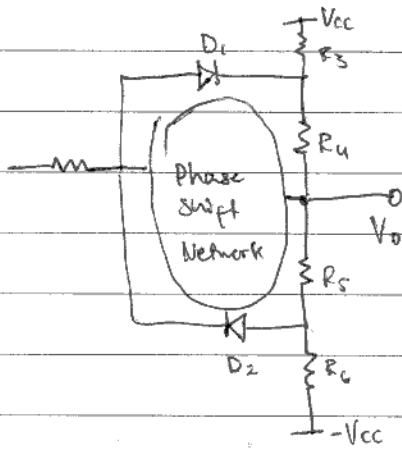 Vcc
D1
R3
R4
Phase
Shift
Network
Vo
R5
D2
R6
-Vcc